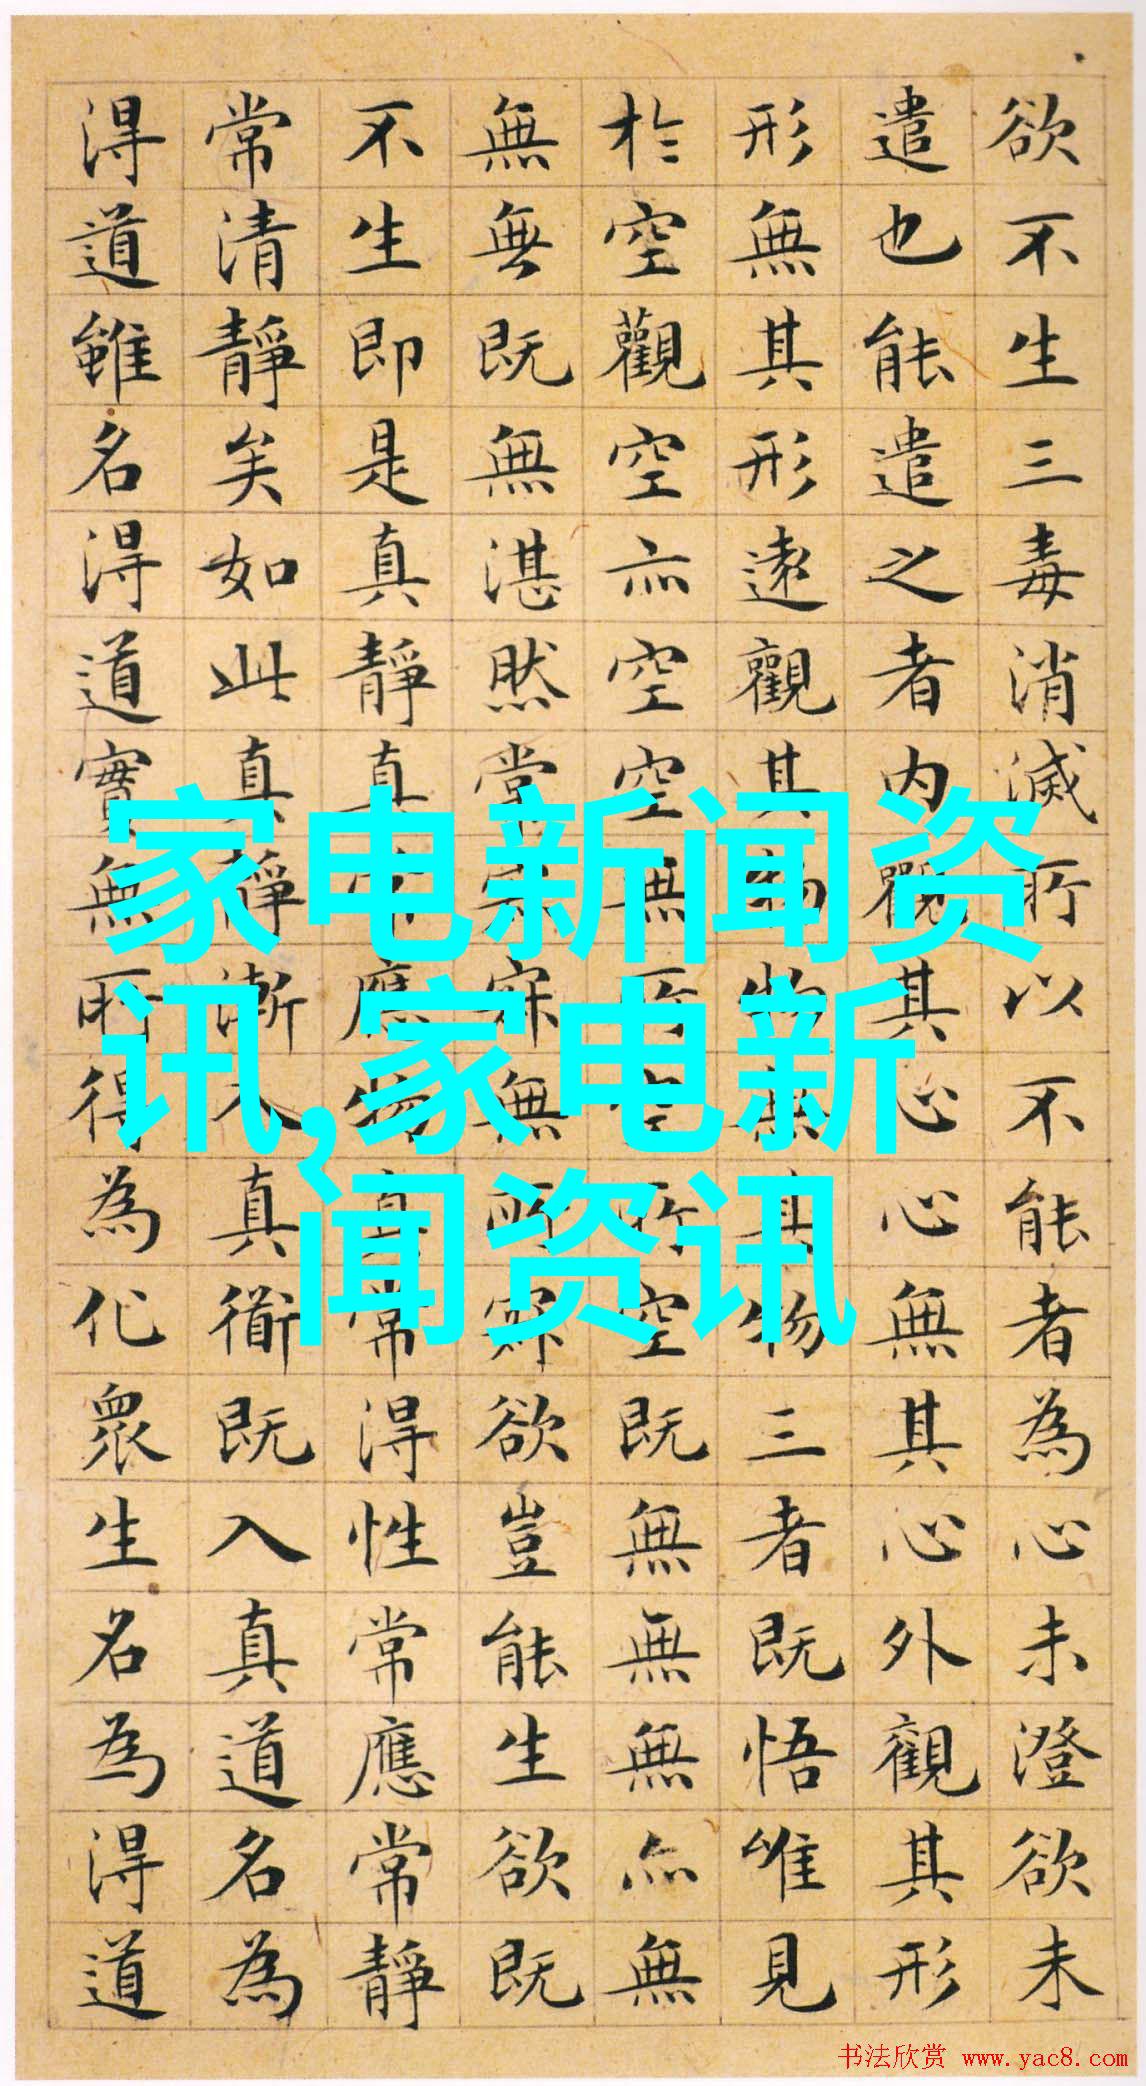 欲不生三毒消滅所以不能者為心未澄欲未
遣也能遣之者内觀其心心無其心外觀其形
形無其形遠觀其物物無其物三者既悟唯見
於空觀空亦空空無所空所空既無無無亦無
無無既無湛然常寂寂無所寂欲豈能生欲既
不生即是真靜真常應物真常得性常應常靜
常清靜矣如此真靜漸入真衟既入真道名為
得道雖名得道實無所得為化眾生名為得道
家电新闻资
讯,家电新
闻资讯
书法欣赏 www.yac8.com